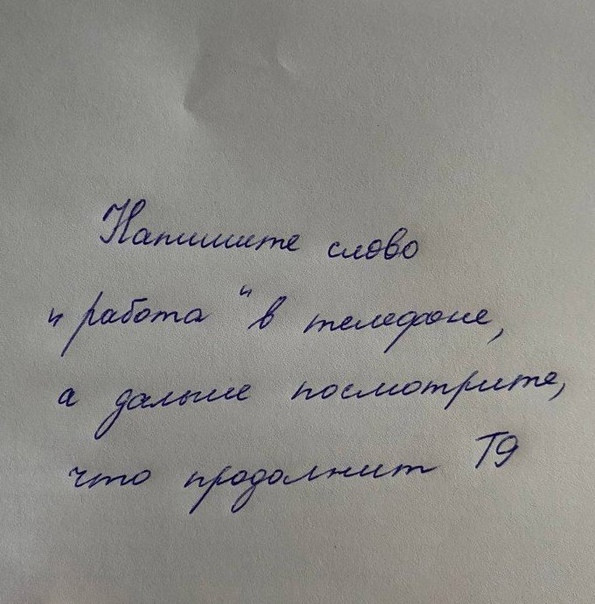 Напишите слово
„работа" в телефоне,
а дальше посмотрите,
что продолжит Т9